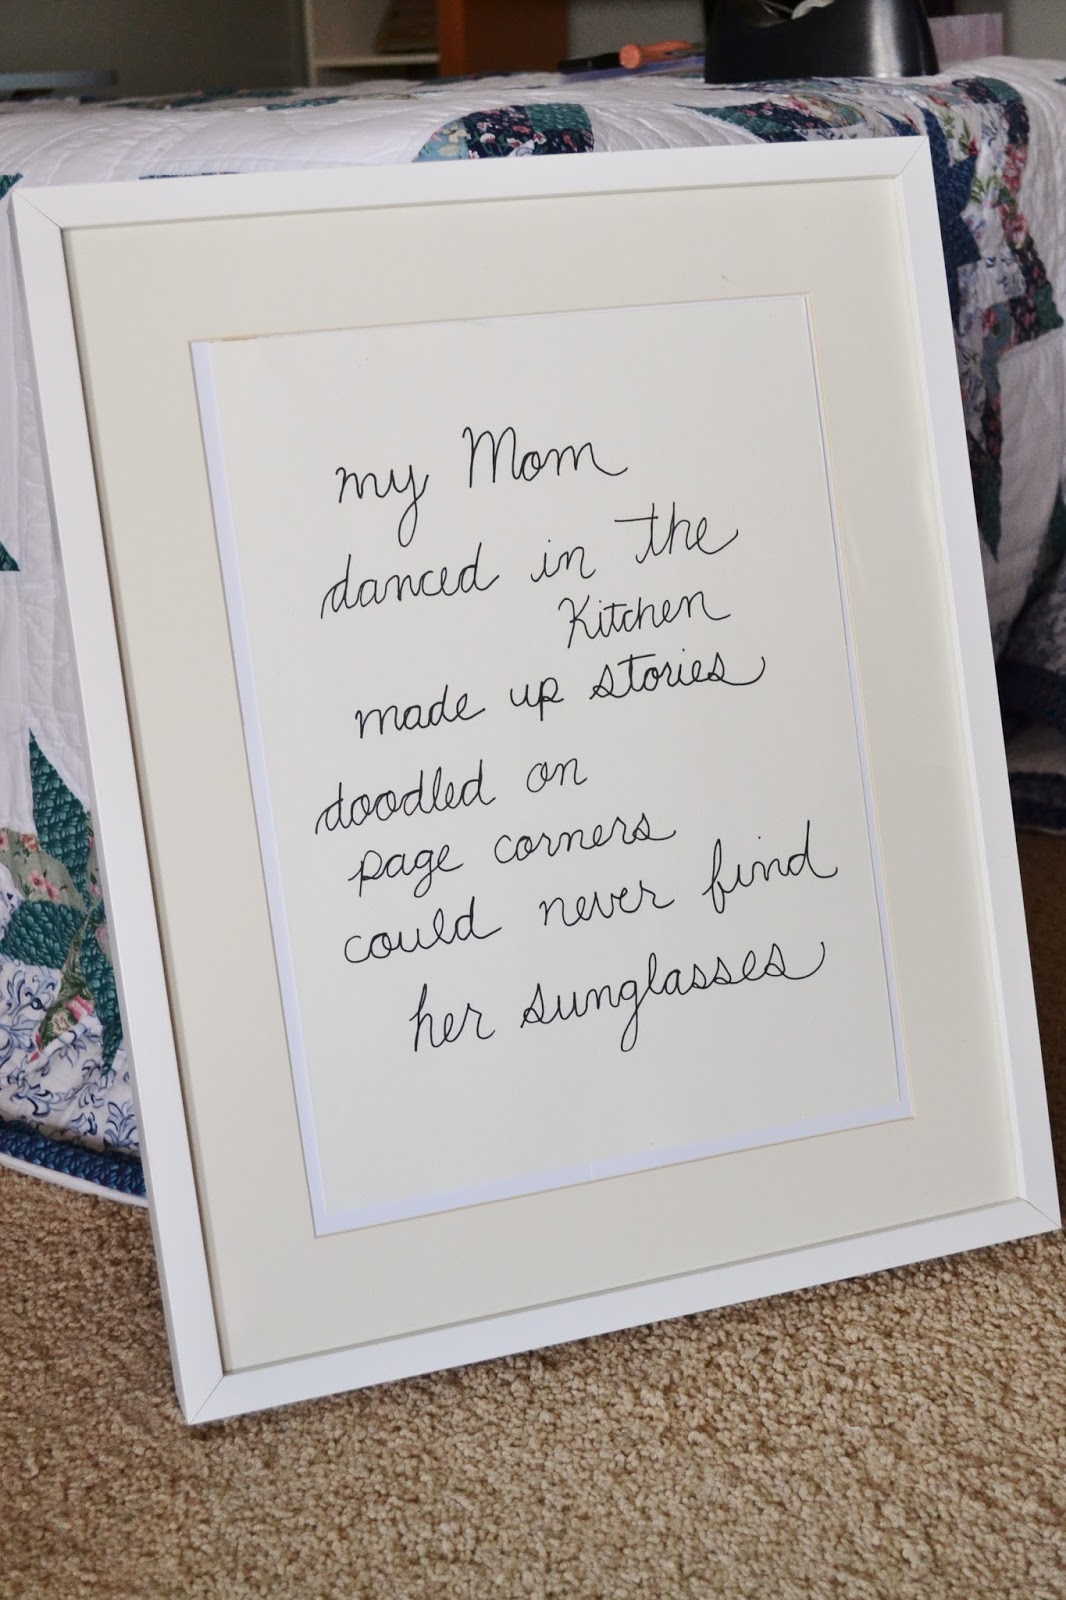 my Mom
danced in the
Kitchen
made up stories
doodled on
page corners
could never find
her sunglasses